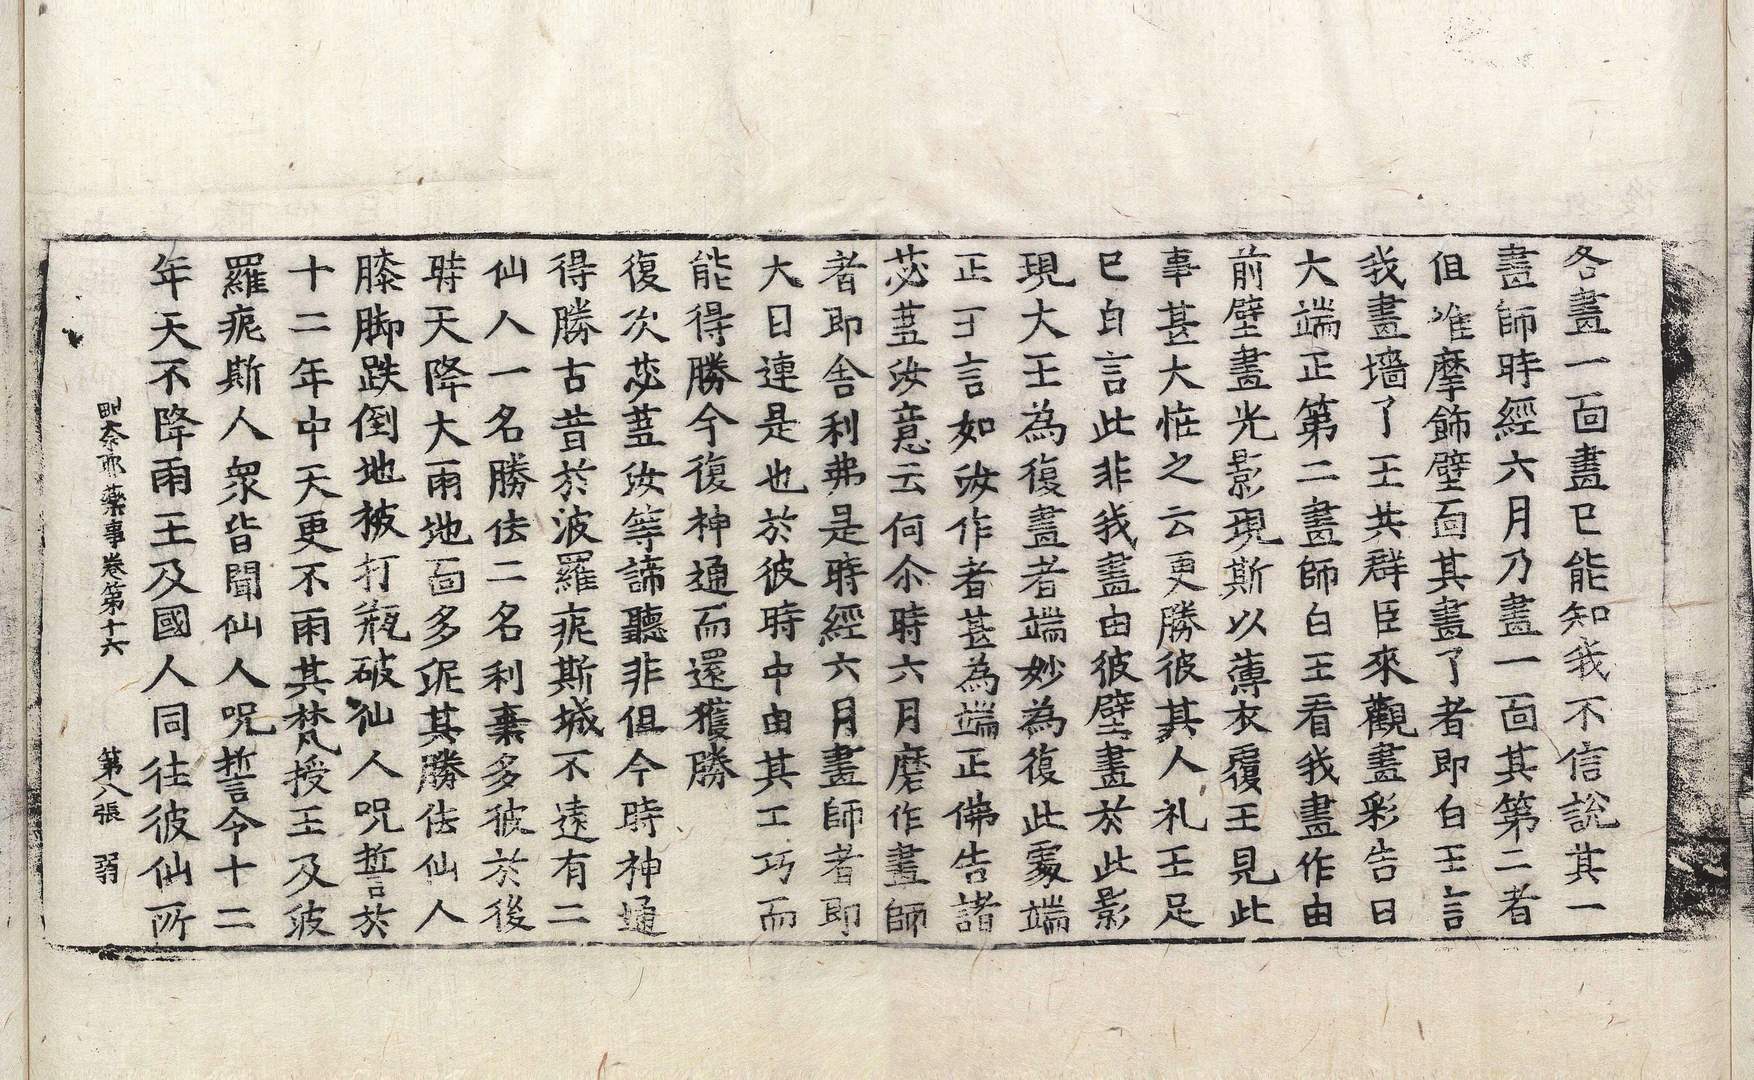 各畫一面畫已能知我不信說其一
畫師時經六月乃畫一面其第二者
但唯摩飾壁面其畫了者即白王言
我畫墻了王共群臣來觀畫彩告曰
大端正第二畫師白王看我畫作由
前壁畫光影現斯以薄衣覆王見此
事甚大恠之云更勝彼其人礼王足
已白言此非我畫由彼壁畫於此影
現大王為復畫者端妙為復此處端
正王言如汝作者甚為端正佛告諸
苾蒭汝意云何尒時六月磨作畫師
者即舍利弗是時經六月畫師者即
大目連是也於彼時中由其工巧而
能得勝今復神通而還獲勝
復次苾蒭汝等諦聽非但今時神通
得勝古昔於波羅痆斯城不遠有二
仙人一名勝佉二名利棄多彼於後
時天降大雨地面多泥其勝佉仙人
膝脚跌倒地被打瓶破仙人呪誓於
十二年中天更不雨其梵授王及波
羅痆斯人衆皆聞仙人呪誓令十二
年天不降雨王及國人同往彼仙所
毗奈耶藥事卷第十六 第八張 弱